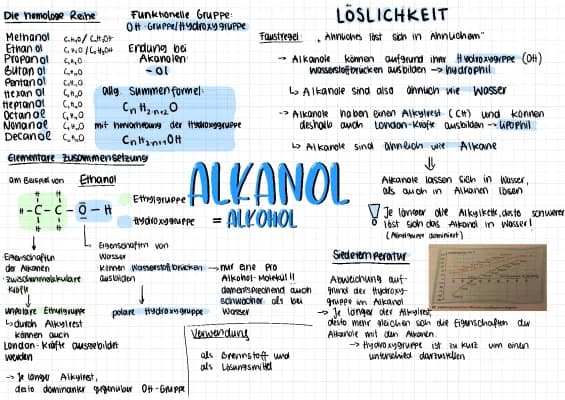 Die homologe Reihe
Methanol
Ethanol
Propanol
Butanol
Pentanol
Hexanol
Heptanol
Octanol
Nonanol
Decanol
Funktionelle Gruppe:
OH-Gruppe/Hydroxygruppe
Endung bei
Akanolen:
-ol
allg. Summenformel:
CnH2·n+2O
mit der Hydroxygruppe
CnH2·n+1OH
Elementare Zusammensetzung
am Beispiel von Ethanol
H
H
H-C-C-O-H
H
H
Ethylgruppe
Hydroxygruppe
Eigenschaften
der Alkanen
zwischenmolekulare
Kräfte
unpolare Ethylgruppe
↳ durch Alkylrest
können auch
London-Kräfte ausgebildet
werden
→ Je länger Alkylrest,
desto dominanter gegenüber OH-Gruppe
Eigenschaften von
Wasser
können Wasserstoffbrücken
ausbilden
polare Hydroxygruppe
→ nur eine pro
Alkohol-Molekül!!
dementsprechend auch
schwächer als bei
Wasser
ALKANOL
= ALKOHOL
Verwendung
als Brennstoff und
als Lösungsmittel
LÖSLICHKEIT
Faustregel: "Ähnliches löst sich in Ähnlichem"
→ Alkanole können aufgrund ihrer Hydroxygruppe (OH)
Wasserstoffbrücken ausbilden → hydrophil
↳ Alkanole sind also ähnlich wie Wasser
→ Alkanole haben einen Alkylrest (CH) und können
deshalb auch London-Kräfte ausbilden → lipophil
↳ Alkanole sind ähnlich wie Alkane
⇓
Alkanole lassen sich in Wasser,
als auch in Alkanen lösen
! Je länger die Alkylkette, desto schwerer
löst sich das Alkanol in Wasser!
Siedetemperatur
Abweichung auf-
grund der Hydroxy-
gruppe im Alkanol
→ Je länger der Alkylrest,
desto mehr gleichen sich die Eigenschaften der
Alkanole mit den Alkanen.
↳ Hydroxygruppe ist zu kurz um einen
unterschied darzustellen